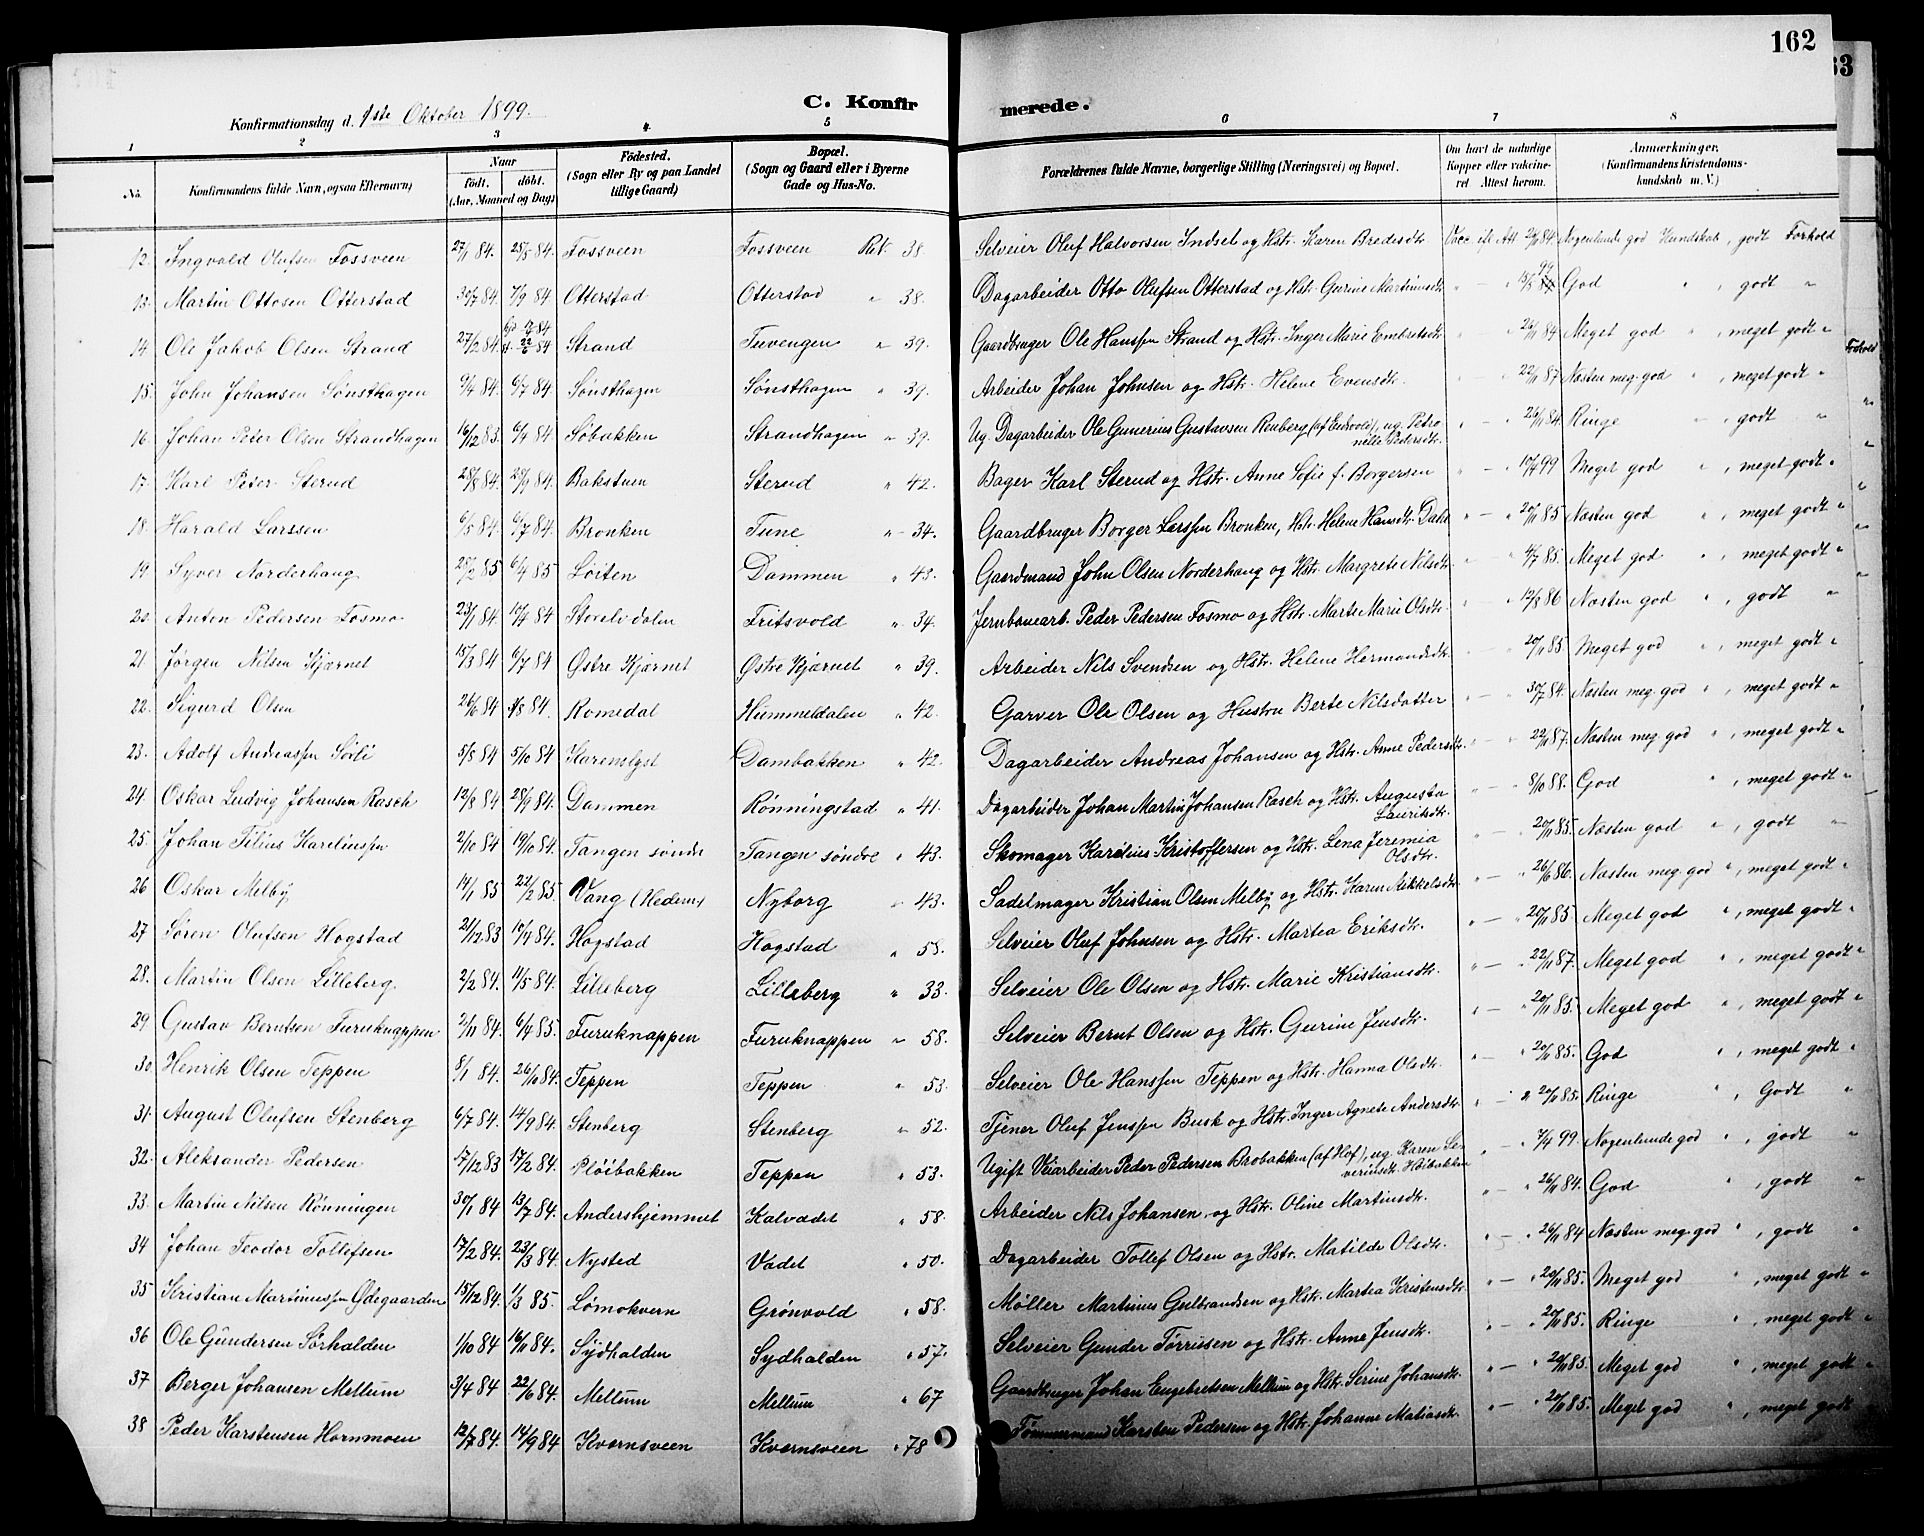 162
63
Konfirmationsdag d. 1ste Oktober 1899.
C. Konfirmerede.
1 2 3 4 5 6 7 8
No. Konfirmandens fulde Navn, ogsaa Efternavn) Naar født. døbt. (Aar, Maaned og Dag) Fødested. (Sogn eller By og paa Landet tillige Gaard) Bopæl. (Sogn og Gaard eller i Byerne Gade og Hus-No. Forældrenes fulde Navne, borgerlige Stilling (Næringsvei) og Bopæl. Om havt de naturlige Kopper eller vakcineret. Attest herom. Anmærkninger. (Konfirmandens Kristendomskundskab m. V.)
12. Ingvald Olufsen Fossveen 27/1 84. 25/5 84. Fossveen Fossveen Rt. 38. Selveier Oluf Halvorsen Indset og Hstr. Karen Bredesdtr. Vacc. ifl. Att. 26/11 84. Nogenlunde god Kundskab, godt Forhold
13. Martin Ottosen Otterstad 30/7 84. 7/9 84 Otterstad Otterstad " 38. Dagarbeider Otto Olufsen Otterstad og Hstr. Gurine Martinusdtr. God " , godt "
14 Ole Jakob Olsen Strand 27/2 84. 22/6 84 Strand Tuvengen " 39. Gaardbruger Ole Hanssen Strand og Hstr. Inger Marie Embretsdtr. " — " 26/11 84 Meget god " , meget godt "
15. John Johansen Sønsthagen 9/4 84. 6/7 84. Sønsthagen Sønsthagen " 39. Arbeider Johan Johnsen og Hstr. Helene Evensdtr. " — " 22/11 87 Næsten meg. god " , meget godt "
16. Johan Peter Olsen Strandhagen 16/12 83. 6/4 84. Søbakken Strandhagen " 39. Ug. Dagarbeider Ole Gunerius Gustavsen Renberg (af Eidsvold), ug. Petronille Pedersdtr. " — " 26/11 84. Ringe " , godt "
17. Karl Peter Sterud 28/8 84. 28/9 84. Bakstuen Sterud " 42. Bager Karl Sterud og Hstr. Anne Sofie f. Borgersen " — " 10/4 99 Meget god " , meget godt "
18. Harald Larssen 6/5 84. 6/7 84. Bronken Tune " 34. Gaardbruger Borger Larssen Bronken, Hstr. Helene Hansdtr. Dahl " — " 20/11 85 Næsten god " , meget godt "
19 Syver Norderhaug 25/2 85 6/4 85 Løiten Dammen " 43. Gaardmand John Olsen Norderhaug og Hstr. Margrete Nilsdtr. " — " 4/7 85. Meget god " , meget godt "
20. Anton Pedersen Fosmo 23/1 84. 10/4 84 Storelvdalen Fritsvold " 34. Jernbanearb. Peder Pedersen Fosmo og Hstr. Marte Marie Olsdtr. " — " 12/8 86 Næsten god " , godt "
21. Jørgen Nilsen Kjærnet 15/3 84 6/7 84 Østre Kjærnet Østre Kjærnet " 39. Arbeider Nils Svendsen og Hstr. Helene Hermansdtr. " — " 20/11 85. Meget god " , meget godt "
22. Sigurd Olsen 26/6 84 /8 84. Romedal Hummeldalen " 42. Garver Ole Olsen og Hustru Berte Nilsdatter " — " 30/7 84. Næsten meg. god " , meget godt "
23. Adolf Andreassen Sørli 5/8 84 5/10 84 Karenslyst Dambakken " 42. Dagarbeider Andreas Johansen og Hstr. Anne Pedersdtr. " — " 22/11 87. Næsten meg. god " , meget godt "
24. Oskar Ludvig Johansen Rasch 12/8 84 28/9 84. Dammen Rønningstad " 41. Dagarbeider Johan Martin Johansen Rasch og Hstr. Augusta Lauritsdtr. " — " 8/10 88. God " , meget godt "
25. Johan Tilius Kareliussen 2/10 84 19/10 84. Tangen søndre Tangen søndre " 43. Skomager Karelius Kristoffersen og Hstr. Lena Jeremia Olsdtr. " — " 20/11 85. Næsten god " , godt "
26 Oskar Melby 14/1 85 22/2 85. Vang (Hedem) Nyborg " 43. Sadelmager Kristian Olsen Melby og Hstr. Karen Mikkelsdtr. " — " 26/6 86. Næsten meg. god " , meget godt "
27 Søren Olufsen Hogstad 21/12 83 10/4 84. Hogstad Hogstad " 58. Selveier Oluf Johnsen og Hstr. Martea Eriksdtr. " — " 20/11 85. Meget god " , meget godt "
28. Martin Olsen Lilleberg. 2/2 84. 11/5 84. Lilleberg Lilleberg " 33. Selveier Ole Olsen og Hstr. Marie Kristiansdtr. " — " 22/11 87. Meget god " , meget godt "
29 Gustav Berntsen Furuknappen 2/11 84. 6/4 85. Furuknappen Furuknappen " 58. Selveier Bernt Olsen og Hstr. Gurine Jensdtr. " — " 20/11 85. Meget god " , meget godt "
30. Henrik Olsen Teppen 8/1 84. 26/10 84. Teppen Teppen " 53. Selveier Ole Hanssen Teppen og Hstr. Hanna Olsdtr. " — " 20/11 85. God " , meget godt "
31. August Olufsen Stenberg 6/7 84. 14/9 84. Stenberg Stenberg " 52. Tjener Oluf Jenssen Busk og Hstr. Inger Agnete Andersdtr. " — " 20/11 85. Ringe " , Godt "
32. Aleksander Pedersen 17/12 83 17/2 84. Pløibakken Teppen " 53. Ugift Veiarbeider Peder Pedersen Brobakken (af Hof), ug. Karen Severinsdtr. Høibakken " — " 7/4 99. Nogenlunde god " , godt "
33. Martin Nilsen Rønningen 30/1 84 13/7 84. Andershjemmet Kalvadet " 58. Arbeider Nils Johansen og Hstr. Oline Martinsdtr. " — " 26/11 84. God " , godt "
34 Johan Teodor Tollefsen 17/2 84. 23/3 84. Nysted Vadet " 50. Dagarbeider Tollef Olsen og Hstr. Matilde Olsdtr. " — " 26/11 84 Næsten meg. god " , godt "
35 Kristian Martinussen Ødegaarden 15/12 84. 1/3 85. Lømokvern Grønvold " 58. Møller Martinus Gulbrandsen og Hstr. Martea Kristensdtr. " — " 20/11 85. Meget god " , meget godt "
36 Ole Gundersen Sørhalden 1/10 84 16/11 84. Sydhalden Sydhalden " 57. Selveier Gunder Tørrissen og Hstr. Anne Jensdtr. " — " 20/11 85. Ringe " , meget godt "
37 Berger Johansen Mellum 3/4 84 22/6 84. Mellum Mellum " 67 Gaardbruger Johan Engebretsen Mellum og Hstr. Serine Johansdtr. " — " 20/11 85. Meget god " , meget godt "
38 Peder Karstensen Hornmoen 12/7 84. 14/9 84 Kvernsveen Kvernsveen " 78 Tømmermand Karsten Pedersen og Hstr. Johanne Matiasdtr. " — " 20/11 85. Meget god " , meget godt
Forhold